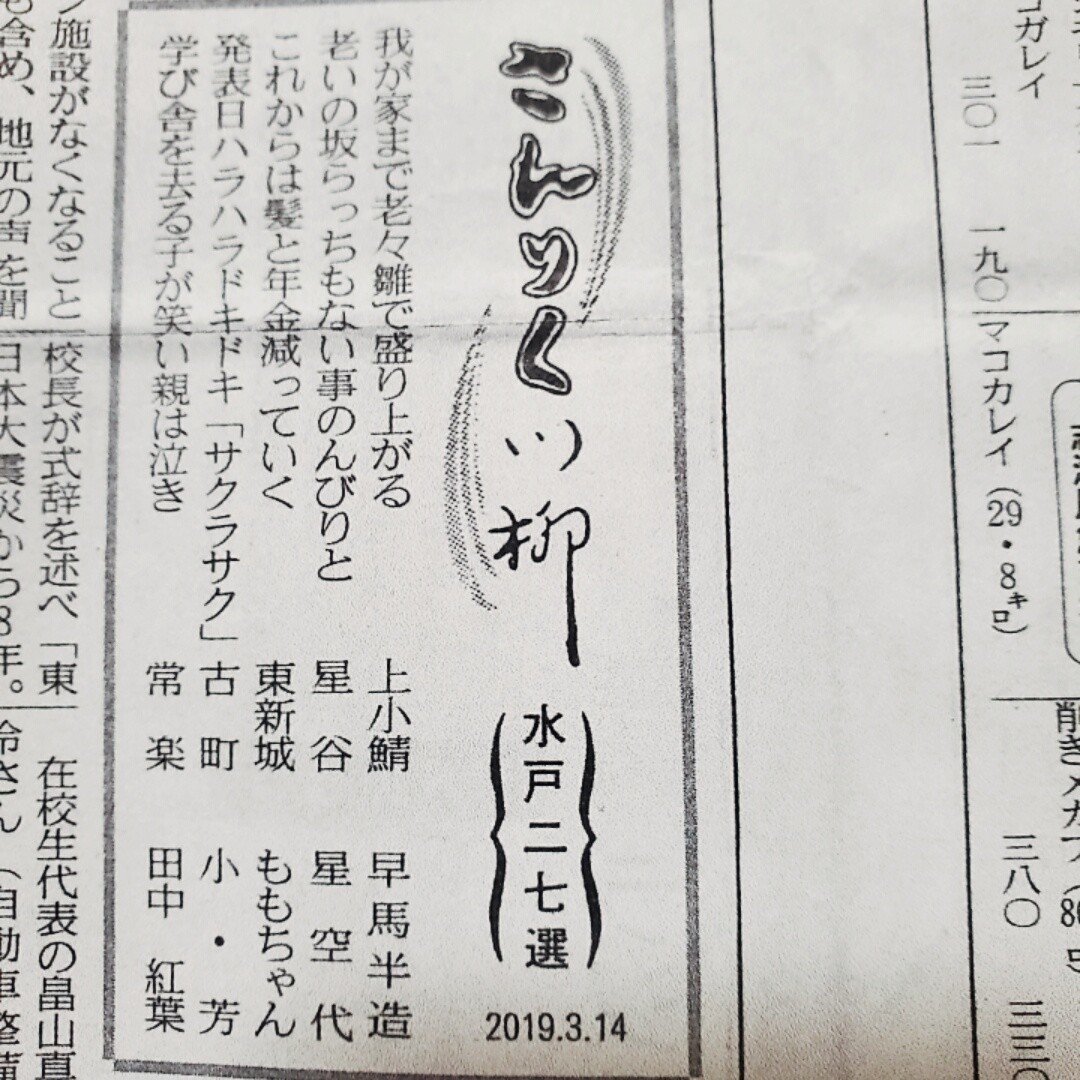 コガレイ
三〇一 一九〇 マコカレイ（29・8㌔）
三八〇
三三〇
こんりんく川柳
（水戸二七選）
2019.3.14
我が家まで老々雛で盛り上がる 上小鯖 早馬半造
老いの坂らっちもない事のんびりと 星谷 星空代
これからは髪と年金減っていく 東新城 ももちゃん
発表日ハラハラドキドキ「サクラサク」 古町 小・芳
学び舎を去る子が笑い親は泣き 常楽 田中紅葉
施設がなくなること
も含め、地元の声を聞
校長が式辞を述べ「東
日本大震災から8年。
在校生代表の畠山真